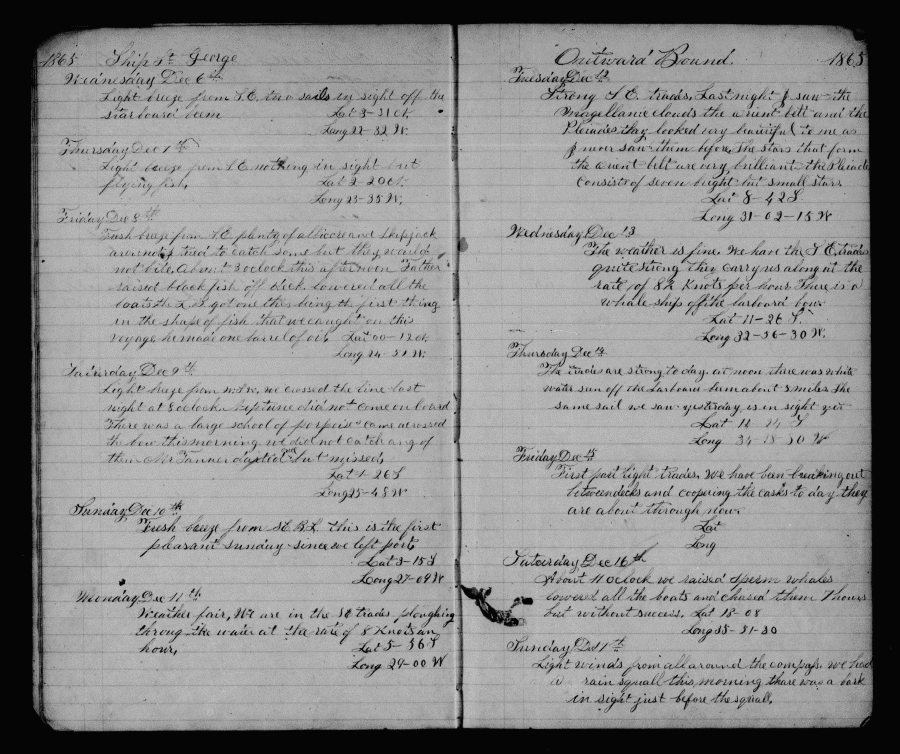 1865 Ship St George
Wednesday Dec 6th
Light breeze from S.E. two sails in sight off the
starboard beem Lat 3-31 N.
Long 22-32 W.
Thursday Dec 7th
Light breeze from S.E. nothing in sight but
flying fish. Lat 2-20 N.
Long 23-35 W.
Friday Dec 8th
Fresh breeze from S.E. plenty of albicore and skipjack
around tried to catch some but they would
not bite. About 3 oclock this afternoon Father
raised blackfish off deck lowered all the
boats the L.B. got one this being the first thing
in the shape of fish that we caught on this
voyage he made one barrel of oil. Lat 00-12 N.
Long 24-51 W.
Saturday Dec 9th
Light breeze from we crossed the line last
night at 8 oclock Neptune did not come on board
There was a large school of porpoise came acrossed
the bow this morning we did not catch any of
them Mr Tanner darted but missed.
Lat 1-26 S
Long 25-48 W
Sunday Dec 10th
Fresh breeze from this is the first
pleasant sunday since we left port.
Lat 3-15 S
Long 27-09 W
Monday Dec 11th
Weather fair, We are in the trades ploughing
throug the water at the rate of 8 Knots an
hour. Lat 5-56 S
Long 29-00 W
Outward Bound. 1865
Tuesday Dec 12
Strong S.E. trades. Last night I saw the
Magellanc clouds the orient belt and the
Pleiades they looked very beautiful to me as
I never saw them before. The stars that form
the orient belt are very brilliant the Pleiades
Consists of seven bright but small stars
Lat 8-42 S
Long 31-02-15 W
Wednesday Dec 13
The weather is fine. We have the S.E. trades
quite strong they carry us along at the
rate of 8½ Knots per hour. There is a
whale ship off the larboard bow.
Lat 11-26 S.
Long 32-56-30 W.
Thursday Dec 14
The trades are strong to day. at noon there was white
water seen off the Larboard beem about 3 miles. The
same sail we saw yesterday is in sight yet
Lat 14 24 S
Long 34-18-30 W
Friday Dec 15
First part light trades. We have been breaking out
betweendecks and coopering the casks to day they
are about through now.
Lat
Long
Saturday Dec 16th
About 11 oclock we raised sperm whales
lowered all the boats and chased them 7 hours
but without success. Lat 18-08
Long 35-31-30
Sunday Dec 17th
Light winds from all around the compass. we had
a rain squall this morning thare was a bark
in sight just before the squall.